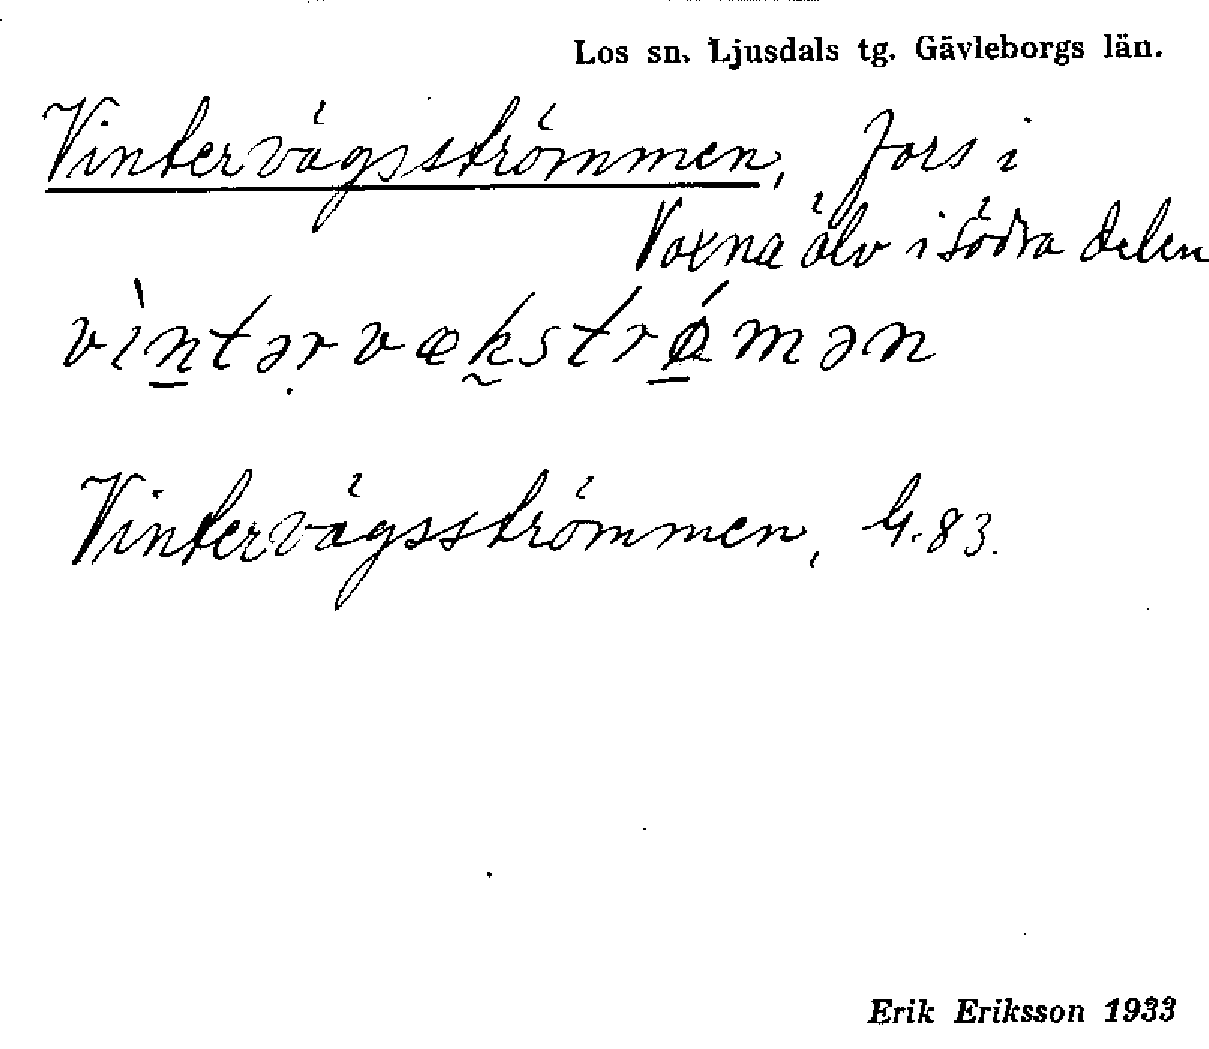 Los sn. Ljusdals tg. Gävleborgs län.
Vintervägsströmmen, Fors i
Voxna älv i södra delen
vìntərvækstrǿmən
Vintervägsströmmen, G. 83.
Erik Eriksson 1933